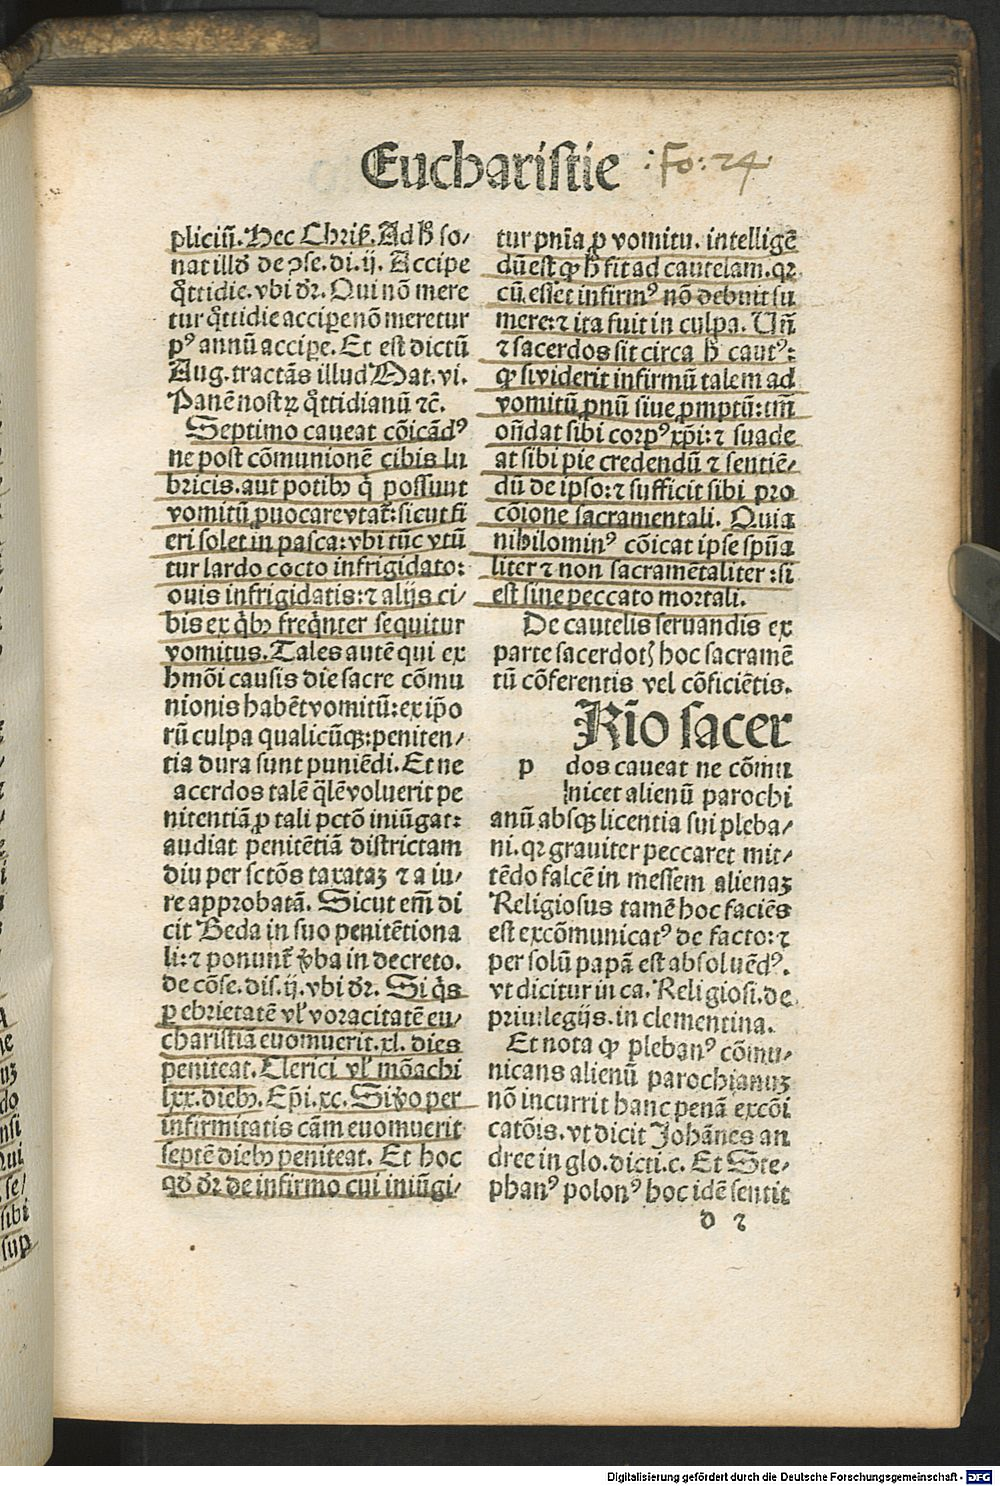 Eucharistie :Fo: 24
pliciū. Hec Chriſ. Ad hͦ ſo/
nat illð de ꝯſe. di. ij. Accipe
q̊ttidie. vbi dr̄. Qui nō mere
tur q̊ttidie accipe nō meretur
pꝰ annū accipe. Et eſt dictū
Aug. tractās illud Mat. vi.
Panē noſtꝝ q̊ttidianū ⁊c̄.
Septimo caueat cōicādꝰ
ne poſt cōmunionē cibis lu
bricis. aut potibꝰ q̇ poſſunt
vomitū ꝓuocare vtat̄: ſicut fi
eri ſolet in paſca: vbi tūc vtū
tur lardo cocto infrigidato:
ouis infrigidatis: ⁊ alijs ci/
bis ex q̇bꝰ freq̄nter ſequitur
vomitus. Tales autē qui ex
hmōi cauſis die ſacre cōmu
nionis habēt vomitū: ex ip̄o
rū culpa qualicūqꝫ: peniten/
tia dura ſunt puniēdi. Et ne
acerdos talē q̄lē voluerit pe
nitentiā ꝓ tali pctō iniūgat:
audiat penitētiā diſtrictam
diu per ſctōs taxataꝫ ⁊ a iu/
re approbatā. Sicut em̄ di
cit Beda in ſuo penitētiona
li: ⁊ ponunt̄ v̓ba in decreto.
de cōſe. diſ. ij. vbi dr̄. Si q̇s
ꝑ ebrietatē vl̓ voracitatē eu/
chariſtiā euomuerit. xl. dies
peniteat. Clerici vl̓ mōachi
lxx. diebꝰ. Ep̄i. xc. Si v̓o per
infirmitatis cām euomuerit
ſeptē diebꝰ peniteat. Et hoc
qð dr̄ de infirmo cui iniūgi/
tur pnīa ꝓ vomitu. intelligē
dū eſt qꝙ hͦ fit ad cautelam. qꝛ
cū eſſet infirmꝰ nō debuit ſu
mere: ⁊ ita fuit in culpa. Un̄
⁊ ſacerdos ſit circa hͦ cautꝰ:
ꝙ ſi viderit infirmū talem ad
vomitū ꝓnū ſiue ꝓmptū: tm̄
oñdat ſibi corpꝰ xp̄i: ⁊ ſuade
at ſibi pie credendū ⁊ ſentiē/
dū de ipſo: ⁊ ſufficit ſibi pro
cōione ſacramentali. Quia
nihilominꝰ cōicat ipſe ſpūa
liter ⁊ non ſacramētaliter: ſi
eſt ſine peccato mortali.
De cautelis ſeruandis ex
parte ſacerdotꝭ hoc ſacramē
tū cōferentis vel cōficiētis.
Rīo ſacer
p dos caueat ne cōmu
nicet alienū parochi
anū abſqꝫ licentia ſui pleba/
ni. qꝛ grauiter peccaret mit/
tēdo falcē in meſſem alienaꝫ
Religioſus tamē hoc faciēs
eſt excōmunicatꝰ de facto: ⁊
per ſolū papā eſt abſoluēdꝰ.
vt dicitur in ca. Religioſi. de
priuilegijs. in clementina.
Et nota ꝙ plebanꝰ cōmu/
nicans alienū parochianuꝫ
nō incurrit hanc penā excōi
catōis. vt dicit Johānes an
dree in glo. dicti. c. Et Ste/
phanꝰ polonꝰ hoc idē ſentit
d 2
Digitalisierung gefördert durch die Deutsche Forschungsgemeinschaft - DFG